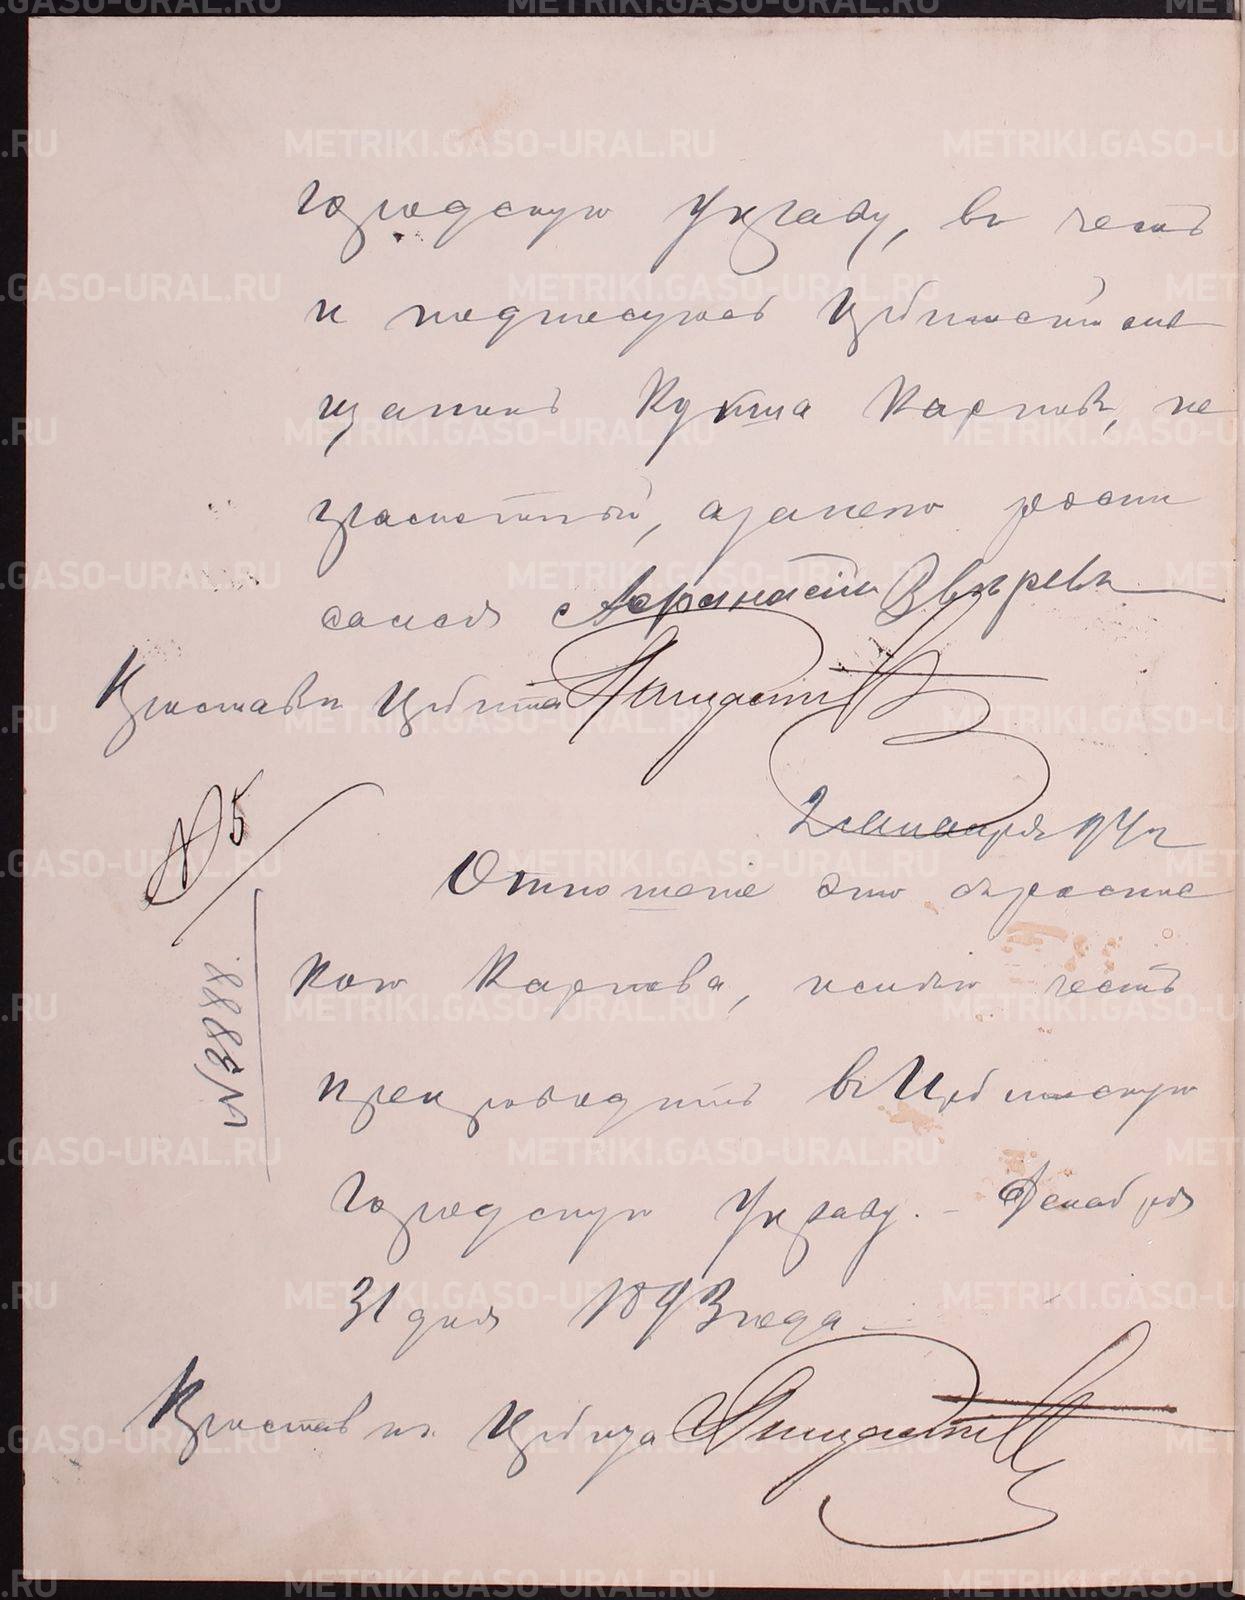 городскую Управу, въ чемъ
и подписуюсь Ирбитскiй мѣ
щанинъ Кузьма Карповъ, не
грамотный, а за него росп
сался Афанасiй Звѣревъ
Приставъ Ирбита
2 Января 94 г
№ 5
Отношенiе это съ роспис
кою Карпова, имѣю честь
препроводить въ Ирбитскую
Городскую Управу. - Декабря
31 дня 1893 года
№ 8888
Приставъ г. Ирбита